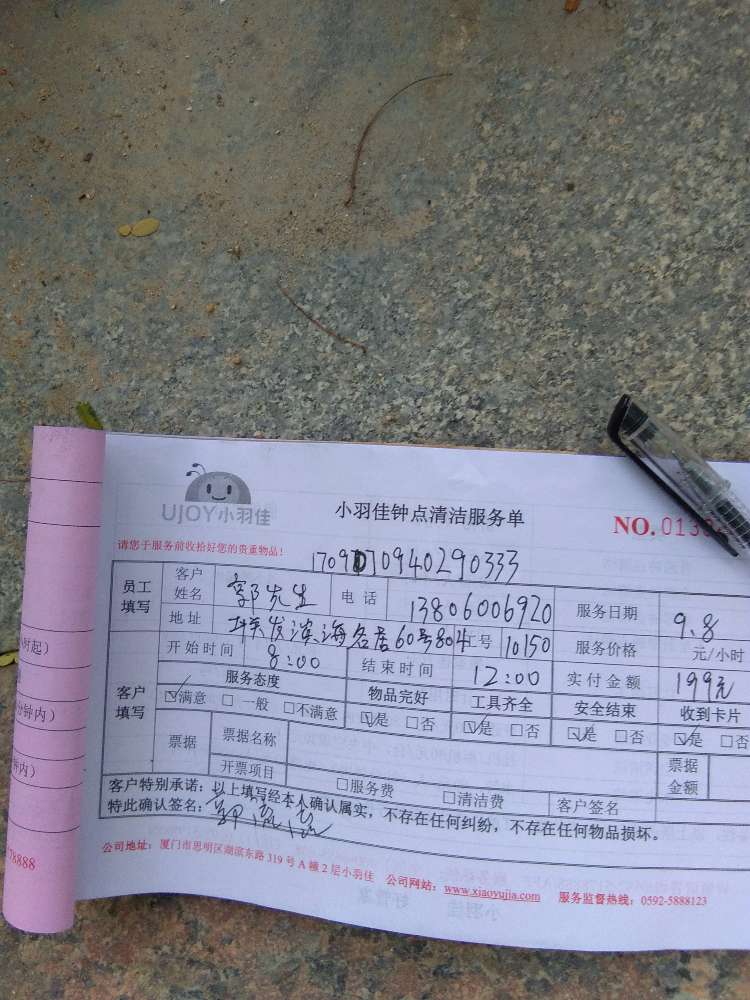 UJOY小羽佳
小羽佳钟点清洁服务单
NO.013
请您于服务前收拾好您的贵重物品！
员工填写 客户姓名 郭先生 电话 13806006920 服务日期 9.8
地址 海名居60号804 工号 10150 服务价格 元/小时
客户填写 开始时间 8:00 结束时间 12:00 实付金额 199元
服务态度 物品完好 工具齐全 安全结束 收到卡片
☑满意 □一般 □不满意 ☑是 □否 ☑是 □否 ☑是 □否 ☑是 □否
票据 票据名称 票据金额
开票项目 □服务费 □清洁费 客户签名
客户特别承诺：以上填写经本人确认属实，不存在任何纠纷，不存在任何物品损坏。
特此确认签名：
公司地址：厦门市思明区湖滨东路319号A幢2层小羽佳 公司网站：www.xiaoyujia.com 服务监督热线：0592-5888123
时起）
分钟内）
内）
78888